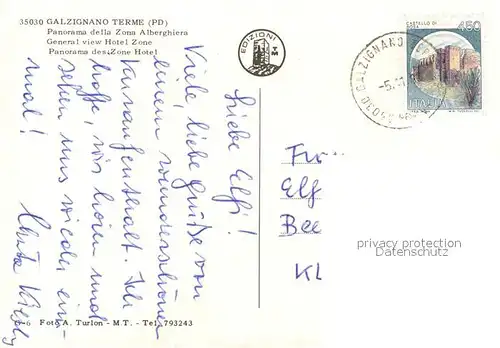 35030 GALZIGNANO TERME (PD)
Panorama della Zona Alberghiera
General view Hotel Zone
Panorama des Zone Hotel
EDIZIONI
TM
CASTELLO DI
450
ITALIA
GALZIGNANO
35030
Liebe Elfi!
Viele, liebe Grüße von
einem wunderschönen
Kuraufenthalt. Ich
hoffe, wir hören und
sehen uns wieder ein-
mal!
Fr
Elf
Bee
Kl
privacy protection
Datenschutz
Foto A. Turlon - M.T. - Tel. 793243